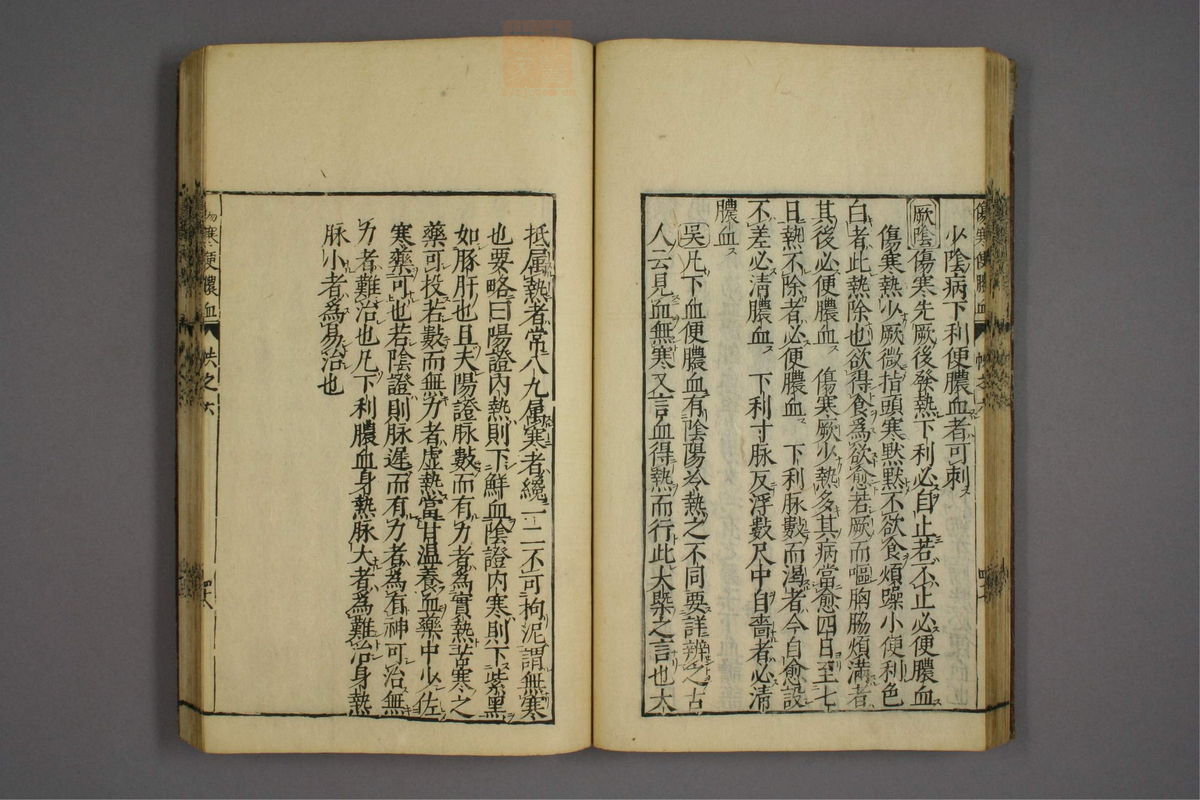 傷寒便膿血
少陰病下利便膿血者可刺
厥陰傷寒先厥後發熱下利必自止若不止必便膿血
傷寒熱少厥微指頭寒默默不欲食煩躁小便利色
白者此熱除也欲得食爲欲愈若厥而嘔胸脇煩滿者
其後必便膿血 傷寒厥少熱多其病當愈四日至七
日熱不除者必便膿血 下利脉數而渴者今自愈設
不差必清膿血 下利寸脉反浮數尺中自濇者必清
膿血
吳凡下血便膿血有陰陽冷熱之不同要詳辨之古
人云見血無寒又言血得熱而行此大槩之言也大
抵属熱者常八九属寒者纔一二不可拘泥謂無寒
也要略曰陽證內熱則下鮮血陰證內寒則下紫黑
如豚肝也且夫陽證脉數而有力者為實熱苦寒之
藥可投若數而無力者虛熱當甘温養血藥中少佐
寒藥可也若陰證則脉遲而有力者為有神可治無
力者難治也凡下利膿血身熱脉大者為難治身熱
脉小者為易治也
傷寒便膿血
共之六